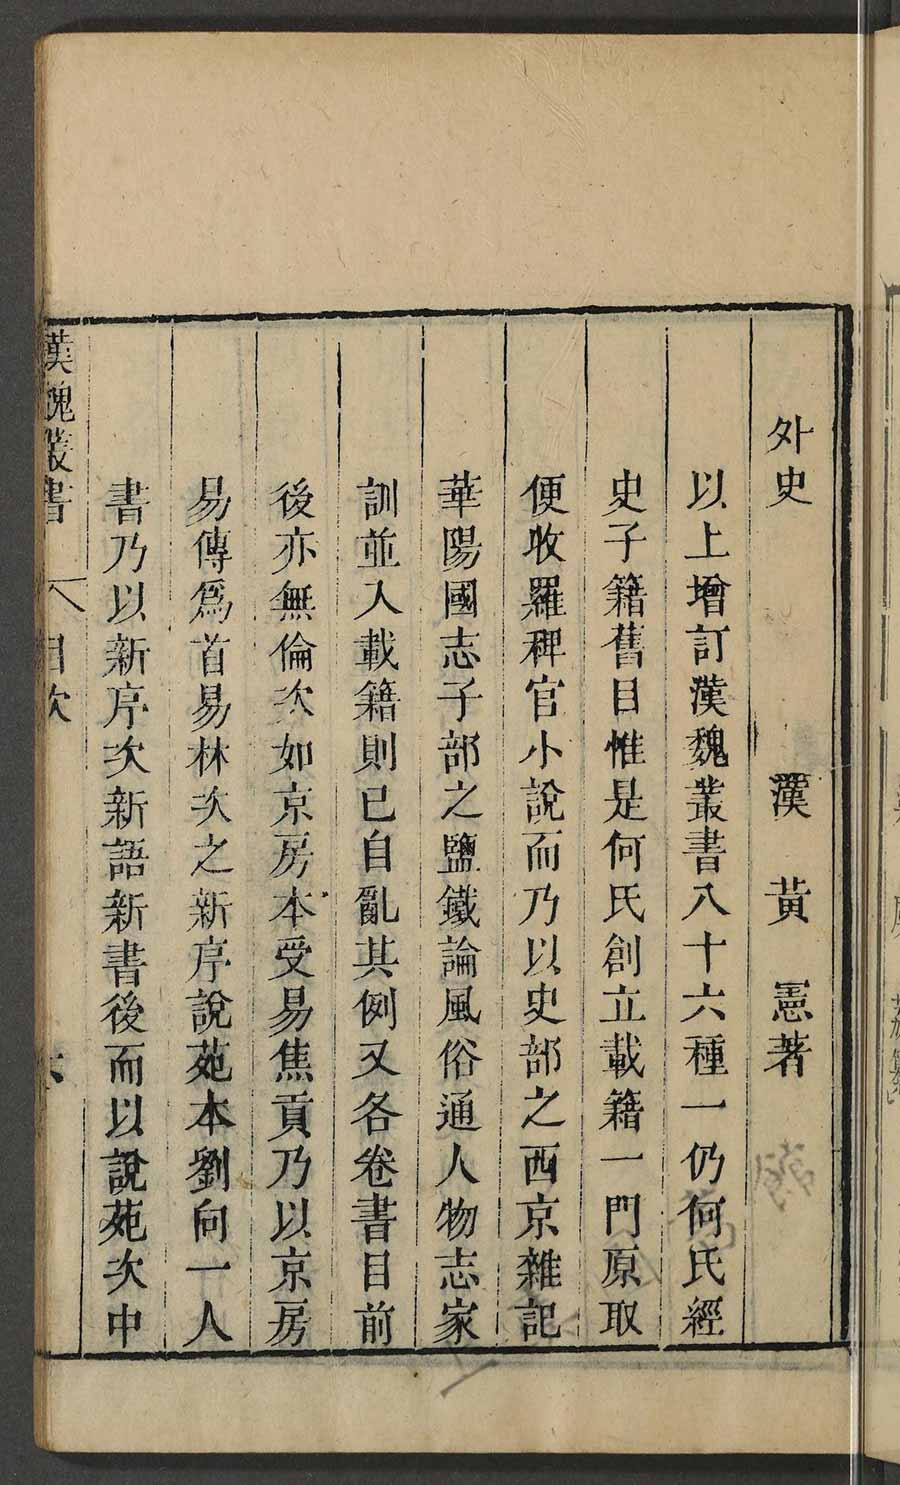 外史 漢 黃 憲著
以上增訂漢魏叢書八十六種一仍何氏經
史子籍舊目惟是何氏創立載籍一門原取
便收羅稗官小說而乃以史部之西京雜記
華陽國志子部之鹽鐵論風俗通人物志家
訓並入載籍則已自亂其例又各卷書目前
後亦無倫次如京房本受易焦貢乃以京房
易傳爲首易林次之新序說苑本劉向一人
書乃以新序次新語新書後而以說苑次中
漢魏叢書 目次